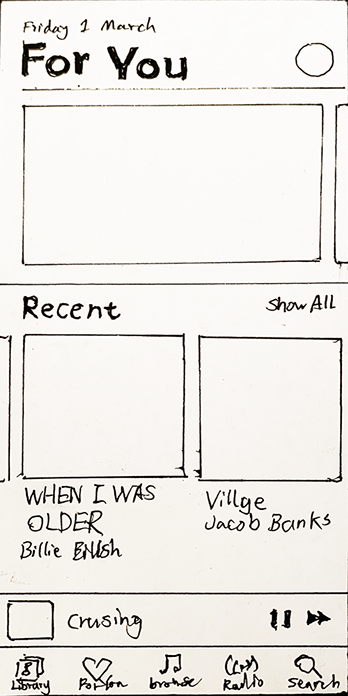 Friday 1 March
For You
Recent
Show All
WHEN I WAS
OLDER
Billie
Villge
Jacob Banks
Crusing
Library
For You
browse
Radio
Search